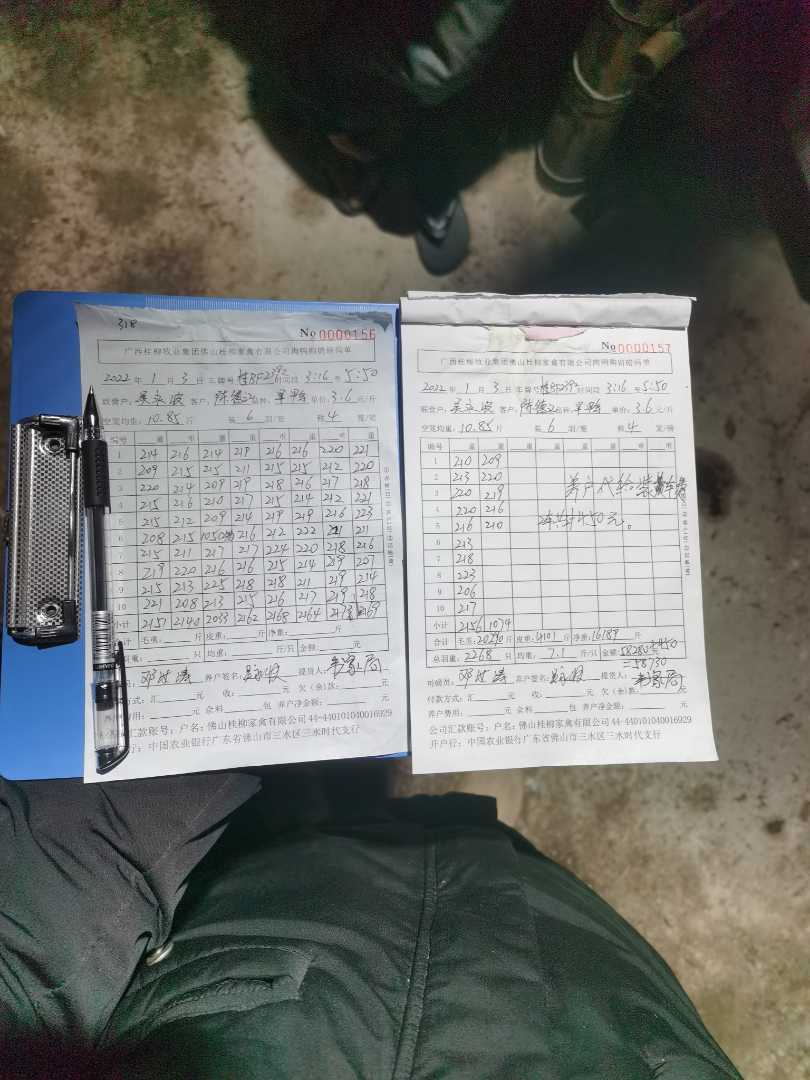 318
No 0000156
广西桂柳牧业集团佛山桂柳家禽有限公司肉鸭购销磅码单
2022 年 1 月 3 日 车牌号 时间段 3:16 至 5:50
联营户: 客户: 陈德 品种: 单价: 3.6 元/斤
空笼均重: 10.85 斤 装 6 羽/笼 称 4 笼/磅
编号 重 重 重 重 重 重 重 重
1 214 216 214 219 216 216 220 221
2 209 215 215 211 215 215 212 220
3 220 214 209 219 218 216 217 218
4 215 216 210 217 215 214 212 221
5 215 212 209 214 219 219 216 223
6 208 215 105 216 212 222 211 211
7 215 211 217 217 224 220 218 216
8 219 220 216 216 215 214 219 207
9 215 213 225 218 218 211 219 214
10 221 208 213 215 216 217 219 218
小计 2151 2140 2033 2162 2168 2164 2169
合计 毛重: 斤 皮重: 斤 净重: 斤
总羽重: 只 均重: 斤/只 金额: 元
养户签名: 提货人:
付款方式: 汇 元 收: 元 欠(余)款: 元
养户费用: 元 余料 包 养户净金额: 元
公司汇款账号: 户名: 佛山桂柳家禽有限公司 44-440101040016929
开户行: 中国农业银行广东省佛山市三水区三水时代支行
No 0000157
广西桂柳牧业集团佛山桂柳家禽有限公司肉鸭购销磅码单
2022 年 1 月 3 日 车牌号 时间段 3:16 至 5:50
联营户: 客户: 陈德 品种: 单价: 3.6 元/斤
空笼均重: 10.85 斤 装 6 羽/笼 称 4 笼/磅
编号 重 重 重 重 重 重 重 重
1 210 209
2 213 220
3 220 219
养户代给装车费
4 220 216
5 216 210
共计450元。
6 213
7 218
8 223
9 206
10 217
小计 2156 1074
合计 毛重: 20290 斤 皮重: 4101 斤 净重: 16189 斤
总羽重: 2268 只 均重: 7.1 斤/只 金额: 58280+450
=58730
司磅员: 养户签名: 提货人:
付款方式: 汇 元 收: 元 欠(余)款: 元
养户费用: 元 余料 包 养户净金额: 元
公司汇款账号: 户名: 佛山桂柳家禽有限公司 44-440101040016929
开户行: 中国农业银行广东省佛山市三水区三水时代支行